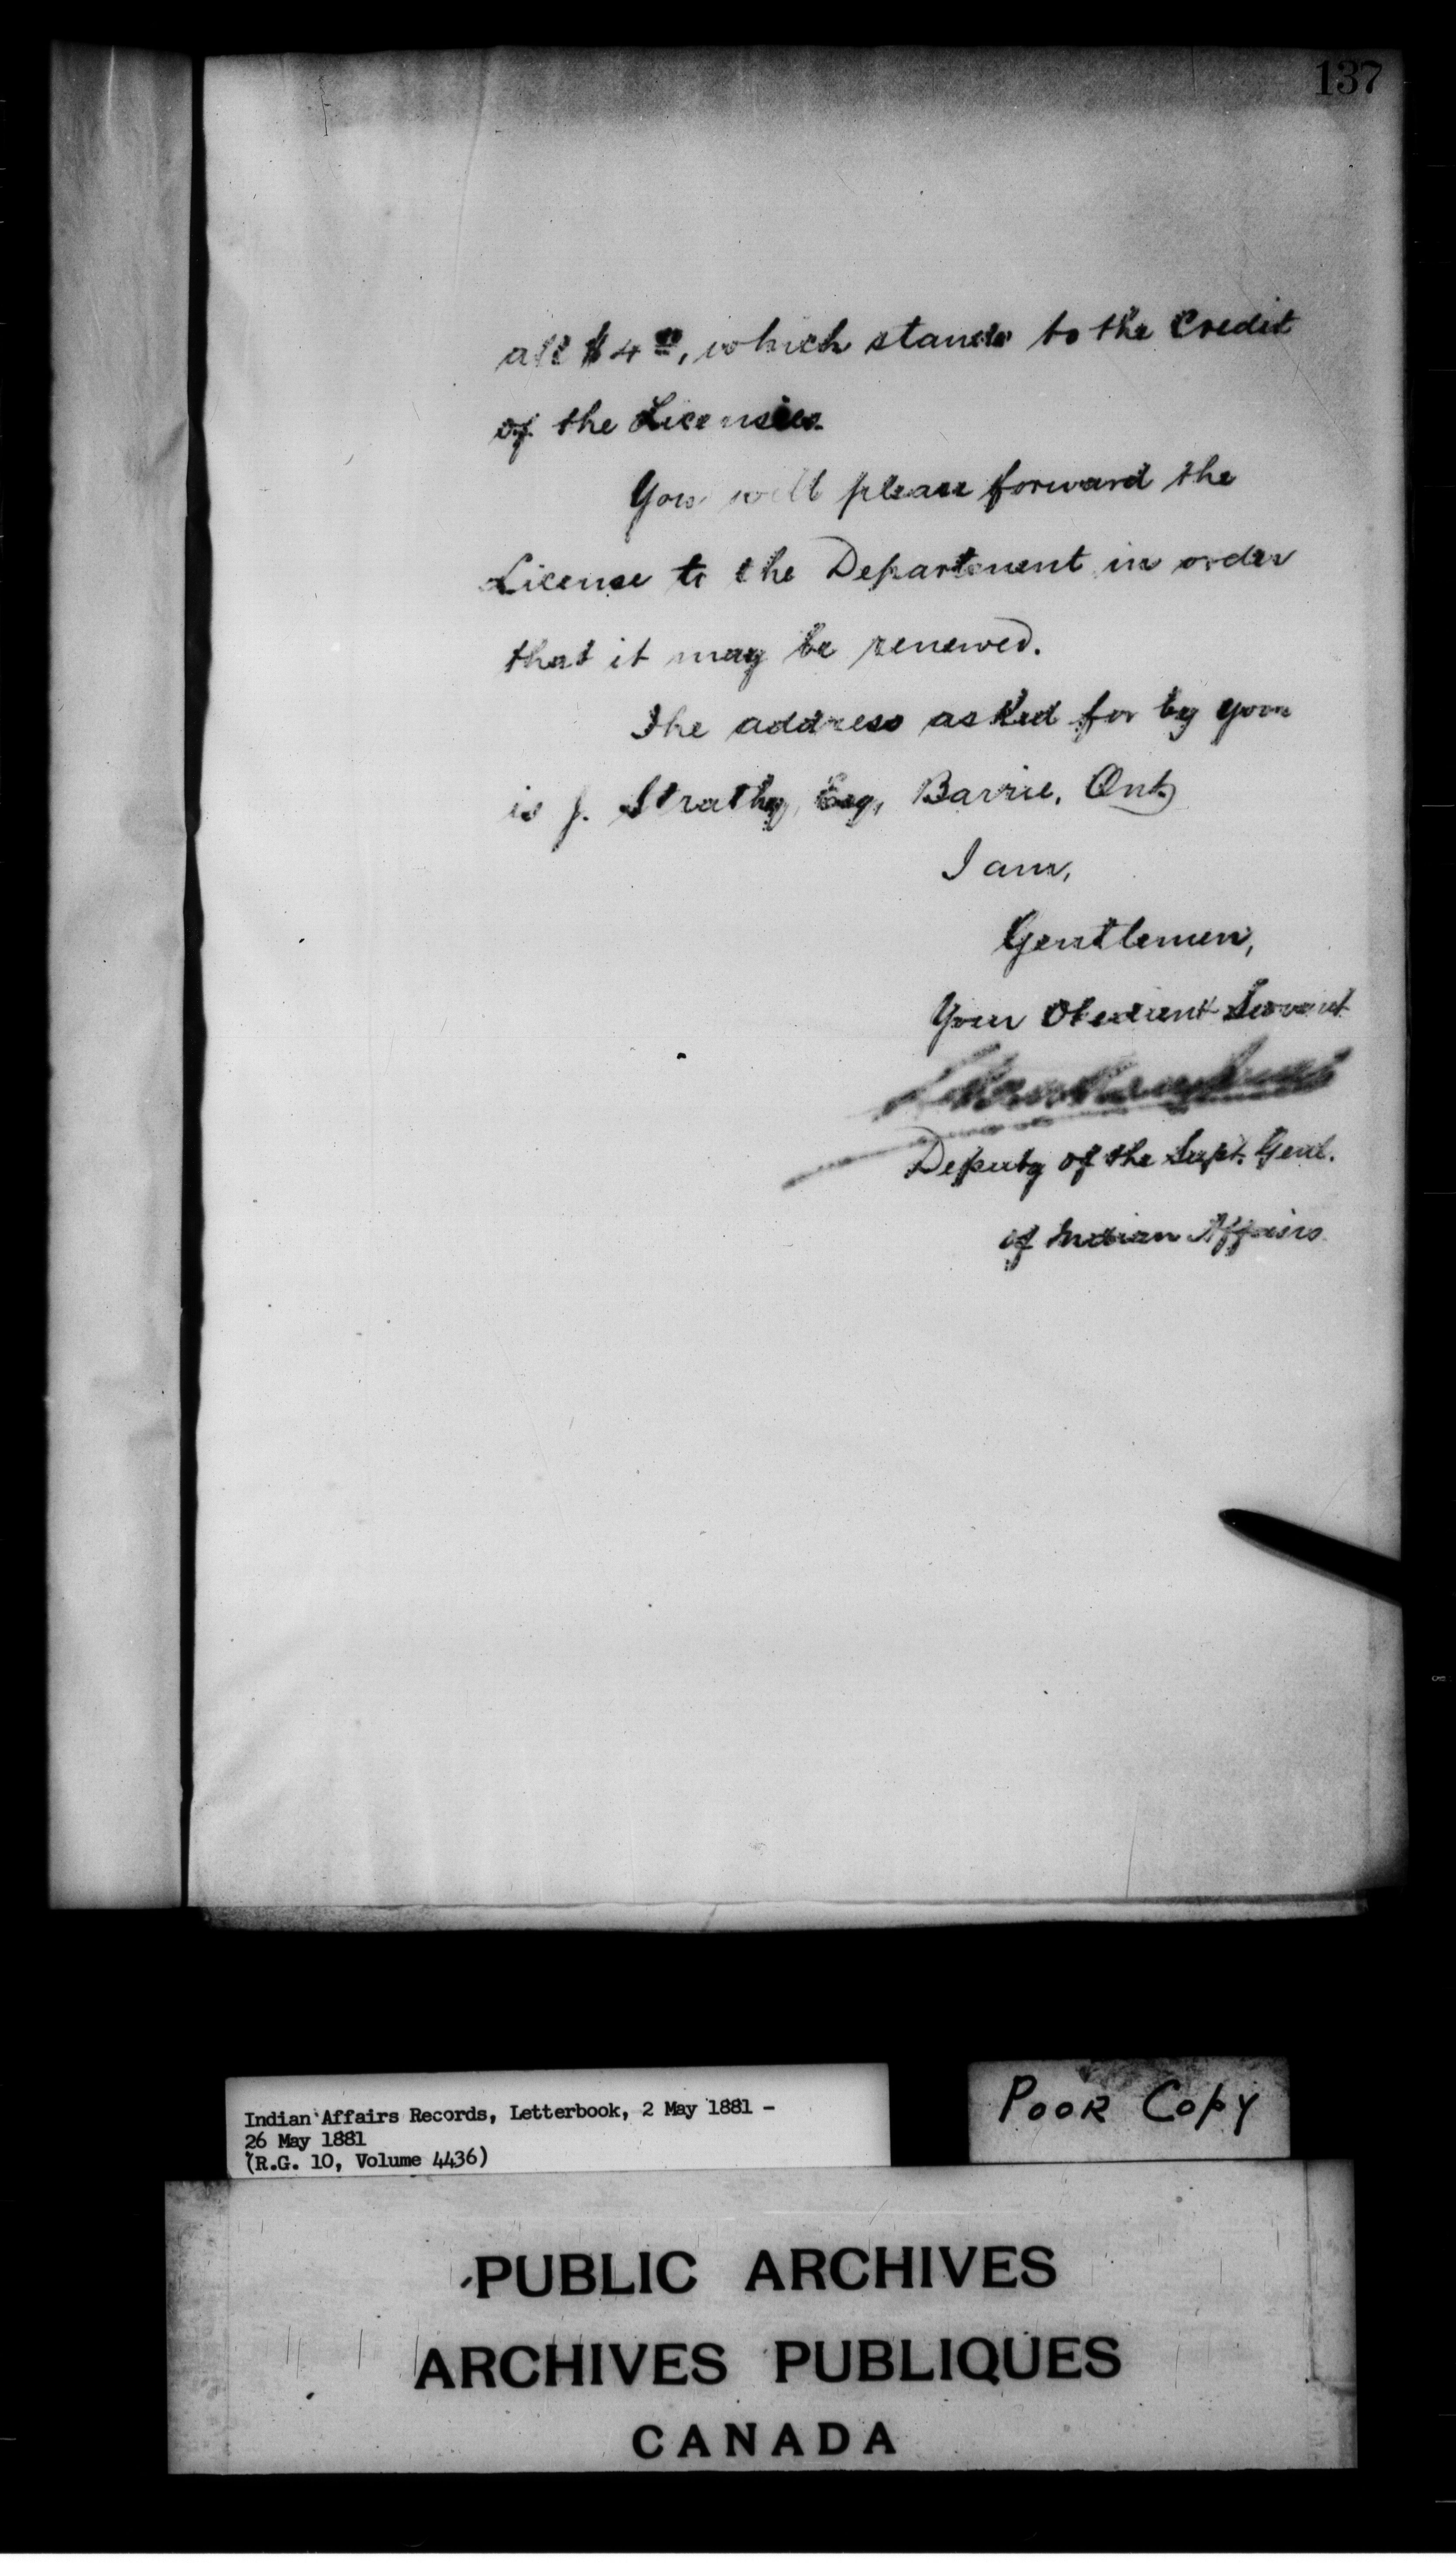 137
all $4.00, which stands to the Credit
of the Licensees.
You will please forward the
License to the Department in order
that it may be renewed.
The address asked for by you
is J. Strathy, Esq, Barrie, Ont,
I am,
Gentlemen,
Your Obedient Servant
Deputy of the Supt. Genl.
of Indian Affairs
Indian Affairs Records, Letterbook, 2 May 1881 -
26 May 1881
(R.G. 10, Volume 4436)
POOR COPY
PUBLIC ARCHIVES
ARCHIVES PUBLIQUES
CANADA